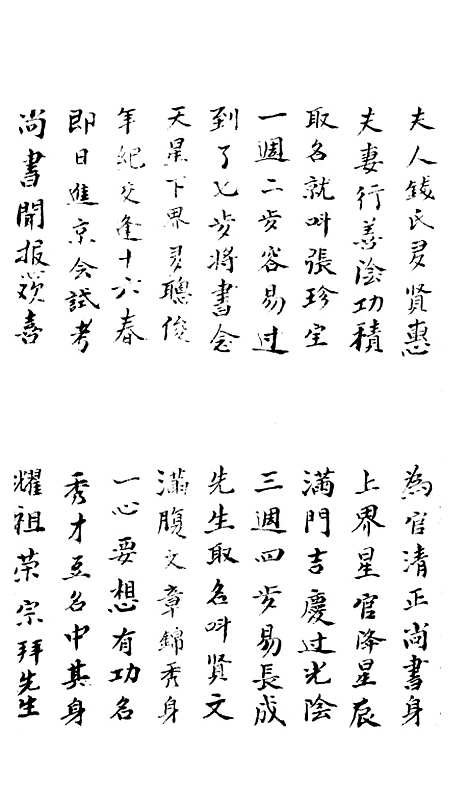 夫人錢氏多贤惠
為官清正尚書身
夫妻行善陰功積
上界星官降星辰
取名就叫張珍宝
满門吉慶过光陰
一週二步容易过
三週四步易長成
到了七步將書念
先生取名叫贤文
天星下界多聰俊
满腹文章錦秀身
年紀交逢十六春
一心要想有功名
即日進京会試考
秀才五名中其身
尚書聞报喜
耀祖荣宗拜先生